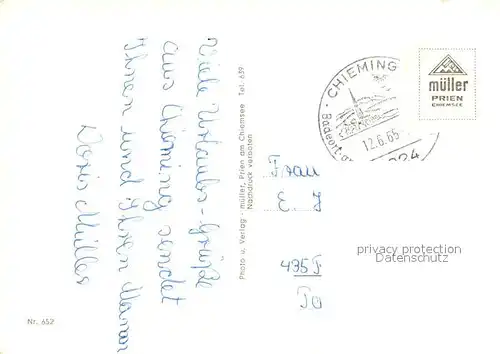 Viele Urlaubs-Grüße
aus Chieming sendet
Ihnen und Ihrem Mann
Doris Müller
Photo u. Verlag - müller, Prien am Chiemsee Tel. 659
Nachdruck verboten
CHIEMING
12.6.65
Badeort
824
müller
PRIEN
CHIEMSEE
Frau
E. J
435
privacy protection
Datenschutz
Nr. 652